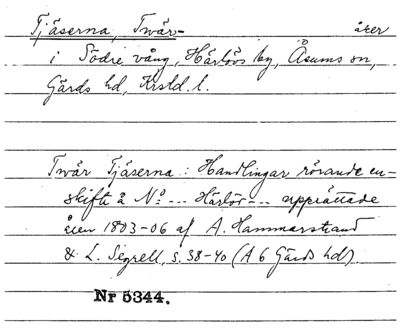 Tjäserna, Twär- åker
i Södre vång, Härlövs by, Åsums sn,
Gärds hd, Krstd. l.
Twär Tjäserna: Handlingar rörande en-
skifte å No --- Härlöv --- upprättade
åren 1803-06 af A. Hammarstrand
& L. Segrell, s. 38-40 (A 6 Gärds hd).
Nr 5344.